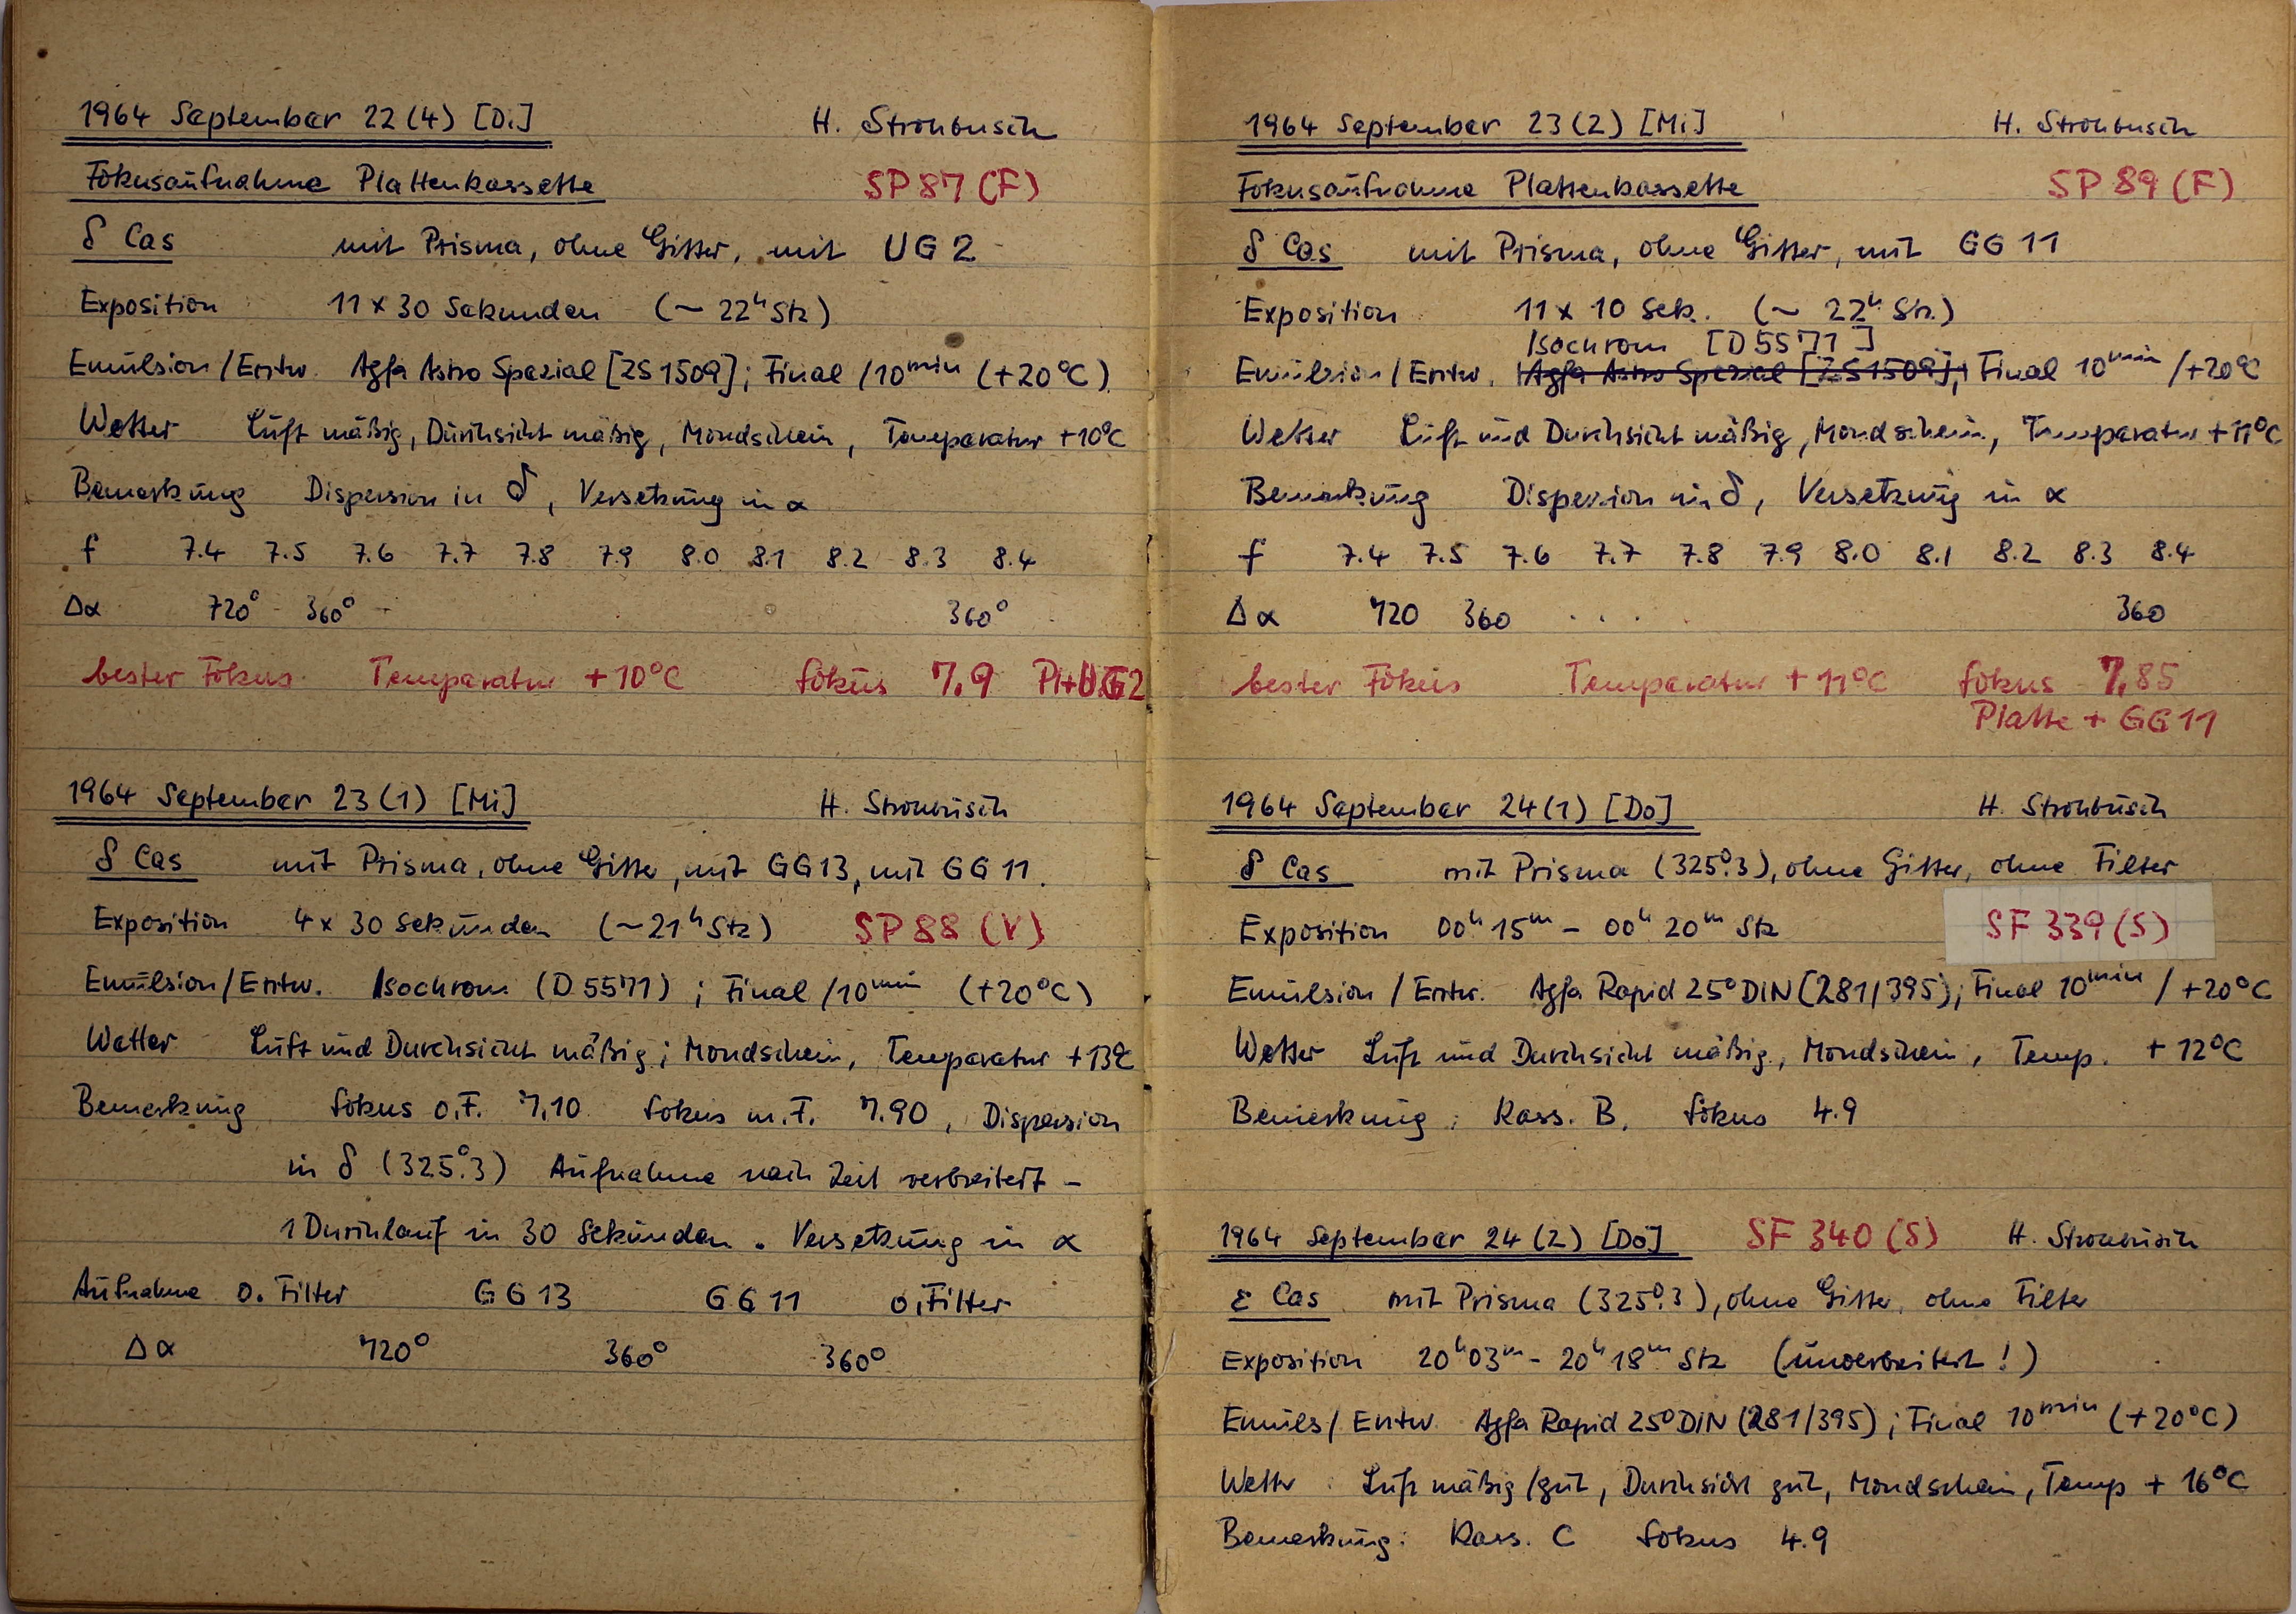 1964 September 22(4) [Di] H. Strohbusch
Fokusaufnahme Plattenkassette SP 87 (F)
δ Cas mit Prisma, ohne Gitter, mit UG 2
Exposition 11 x 30 Sekunden (~ 22ʰ Stz)
Emulsion/Entw. Agfa Astro Spezial [ZS 1509]; Final /10ᵐⁱⁿ (+20°C)
Wetter Luft mäßig, Durchsicht mäßig, Mondschein, Temperatur +10°C
Bemerkung Dispersion in δ, Versetzung in α
f 7.4 7.5 7.6 7.7 7.8 7.9 8.0 8.1 8.2 8.3 8.4
Δα 720° 360° 360°
bester Fokus Temperatur +10°C Fokus 7.9 Pl+UG2
1964 September 23(1) [Mi] H. Strohbusch
δ Cas mit Prisma, ohne Gitter, mit GG13, mit GG 11.
Exposition 4 x 30 Sekunden (~21ʰ Stz) SP 88 (V)
Emulsion/Entw. Isochrom (D 5571); Final /10ᵐⁱⁿ (+20°C)
Wetter Luft und Durchsicht mäßig; Mondschein, Temperatur +13°C
Bemerkung Fokus o.F. 7,10 Fokus m.F. 7.90, Dispersion
in δ (325°.3) Aufnahme nach Zeit verbreitert -
1 Durchlauf in 30 Sekunden. Versetzung in α
Aufnahme o. Filter GG 13 GG 11 o. Filter
Δα 720° 360° 360°
1964 September 23(2) [Mi] H. Strohbusch
Fokusaufnahme Plattenkassette SP 89 (F)
δ Cas mit Prisma, ohne Gitter, mit GG 11
Exposition 11 x 10 Sek. (~ 22ʰ Stz.)
Isochrom [D 5571]
Emulsion/Entw. Agfa Astro Spezial [ZS 1509]; Final 10ᵐⁱⁿ /+20°C
Wetter Luft und Durchsicht mäßig, Mondschein, Temperatur +11°C
Bemerkung Dispersion in δ, Versetzung in α
f 7.4 7.5 7.6 7.7 7.8 7.9 8.0 8.1 8.2 8.3 8.4
Δα 720 360 . . . 360
bester Fokus Temperatur +11°C Fokus 7.85
Platte + GG 11
1964 September 24(1) [Do] H. Strohbusch
δ Cas mit Prisma (325°.3), ohne Gitter, ohne Filter
Exposition 00ʰ 15ᵐ - 00ʰ 20ᵐ Stz SF 339 (S)
Emulsion / Entw. Agfa Rapid 25° DIN (281/395); Final 10ᵐⁱⁿ / +20°C
Wetter Luft und Durchsicht mäßig, Mondschein, Temp. +12°C
Bemerkung: Kass. B, Fokus 4.9
1964 September 24(2) [Do] SF 340 (S) H. Strohbusch
ε Cas mit Prisma (325°.3), ohne Gitter, ohne Filter
Exposition 20ʰ03ᵐ - 20ʰ18ᵐ Stz (unverbreitert!)
Emuls/Entw Agfa Rapid 25° DIN (281/395); Final 10ᵐⁱⁿ (+20°C)
Wettr Luft mäßig/gut, Durchsicht gut, Mondschein, Temp + 16°C
Bemerkung: Kass. C Fokus 4.9